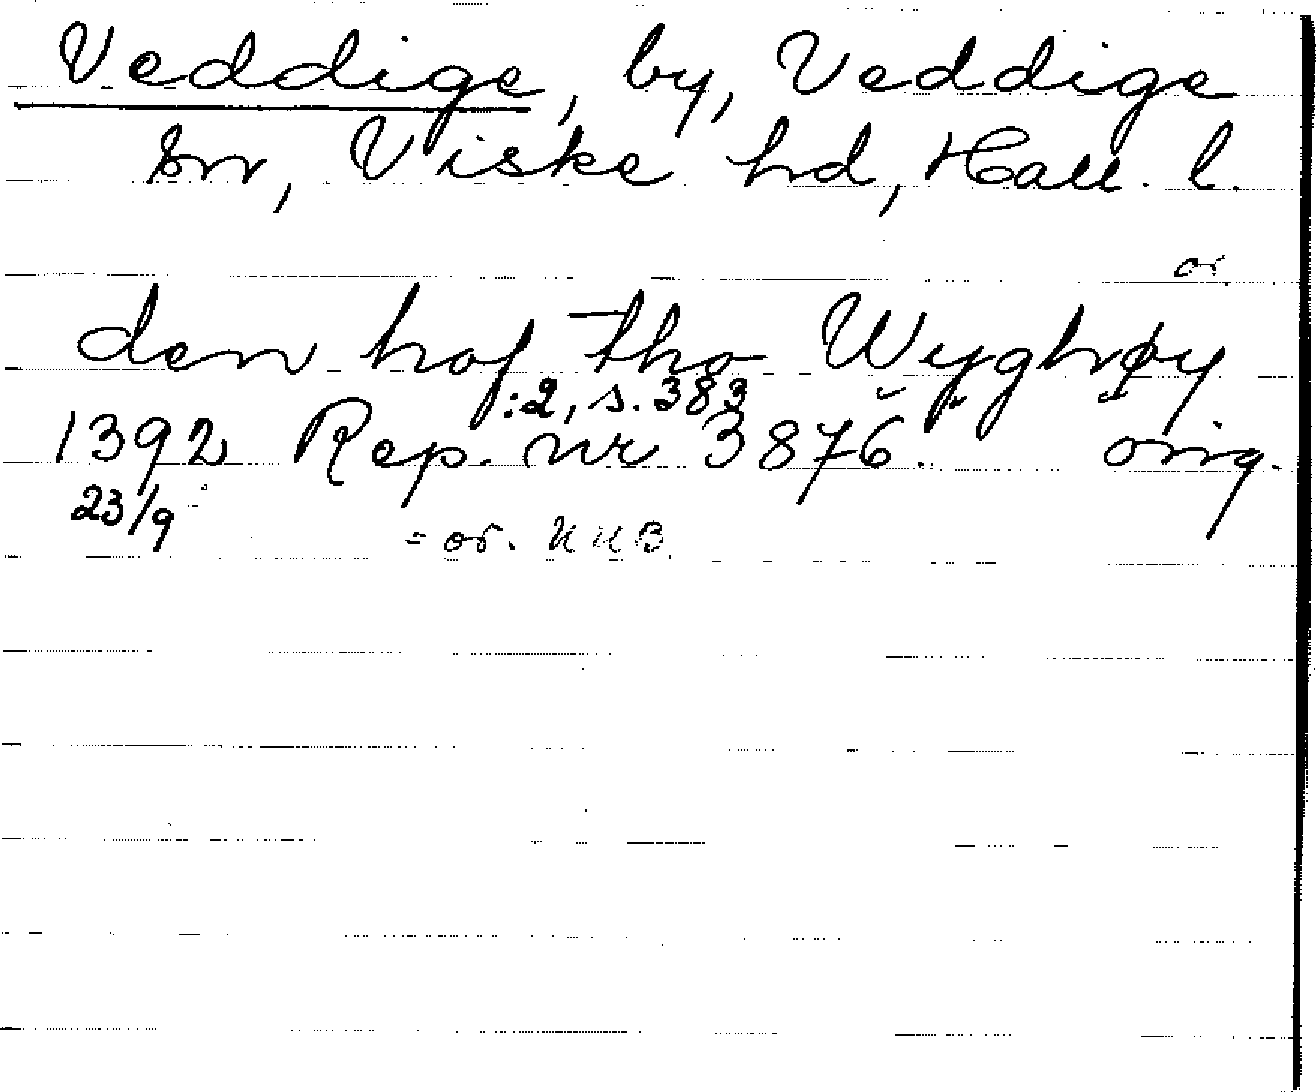 Veddige, by, Veddige
sn, Viske hd, Hall. l.
or
den hof tho Wyghøy
:2, s. 383
1392 Rep. nr 3876. orig.
23/9
= or. UUB.